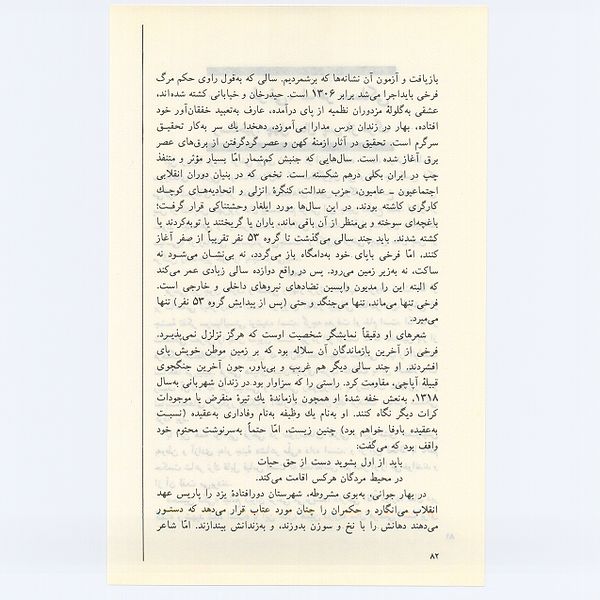 بازیافت و آزمون آن نشانه‌ها که برشمردیم. سالی که به‌قول راوی حکم مرگ
فرخی بایداجرا می‌شد برابر ۱۳۰۶ است. حیدرخان و خیابانی کشته شده‌اند،
عشقی به‌گلولهٔ مزدوران نظمیه از پای درآمده، عارف به‌تعبید خفقان‌آور خود
افتاده، بهار در زندان درس مدارا می‌آموزد، دهخدا یك سر به‌کار تحقیق
سرگرم است. تحقیق در آثار ازمنهٔ کهن و عصر گردگرفتن از برق‌های عصر
برق آغاز شده است. سال‌هایی که جنبش کم‌شمار امّا بسیار مؤثر و متنفذ
چپ در ایران بکلی درهم شکسته است. تخمی که در بنیان دوران انقلابی
اجتماعیون ـ عامیون، حزب عدالت، کنگرهٔ انزلی و اتحادیه‌هـای کوچـك
کارگری کاشته بودند، در این سال‌ها مورد ایلغار وحشتناکی قرار گرفـت؛
باغچه‌ای سوخته و بی‌منظر از آن باقی ماند، یاران یا گریختند یا توبه‌کردند یا
کشته شدند. باید چند سالی می‌گذشت تا گروه ۵۳ نفر تقریباً از صفر آغاز
کنند، امّا فرخی بابای خود به‌دامگاه باز می‌گردد، نه بی‌نشـان می‌شـود نه
ساکت، نه به‌زیر زمین می‌رود. پس در واقع دوازده سالی زیادی عمر می‌کند
که البته این را مدیون واپسین تضادهای نیروهای داخلی و خارجی است.
فرخی تنها می‌ماند، تنها می‌جنگد و حتی (پس از پیدایش گروه ۵۳ نفر) تنها
می‌میرد.
شعرهای او دقیقاً نمایشگر شخصیت اوست که هرگز تزلزل نمی‌پذیـرد.
فرخی از آخرین بازماندگان آن سلاله بود که بر زمین موطن خویش پای
افشردند. او چند سالی دیگر هم غریب و بی‌یاور، چون آخرین جنگجوی
قبیلهٔ آپاچی، مقاومت کرد. راستی را که سزاوار بود در زندان شهربانی به‌سال
۱۳۱۸، به‌نعش خفه شدهٔ او همچون بازماندهٔ یك تیرهٔ منقرض یا موجودات
کرات دیگر نگاه کنند. او به‌نام یك وظیفه به‌نام وفاداری به‌عقیده (نسبـت
به‌عقیده باوفا خواهم بود) چنین زیست، امّا حتماً به‌سرنوشت محتوم خود
واقف بود که می‌گفت:
باید از اول بشوید دست از حق حیات
در محیط مردگان هرکس اقامت می‌کند.
در بهار جوانی، به‌بوی مشروطه، شهرستان دورافتادهٔ یزد را پاریس عهد
انقلاب می‌انگارد و حکمران را چنان مورد عتاب قرار می‌دهد که دستـور
می‌دهند دهانش را با نخ و سوزن بدوزند، و به‌زندانش بیندازند. امّا شاعر
۸۲